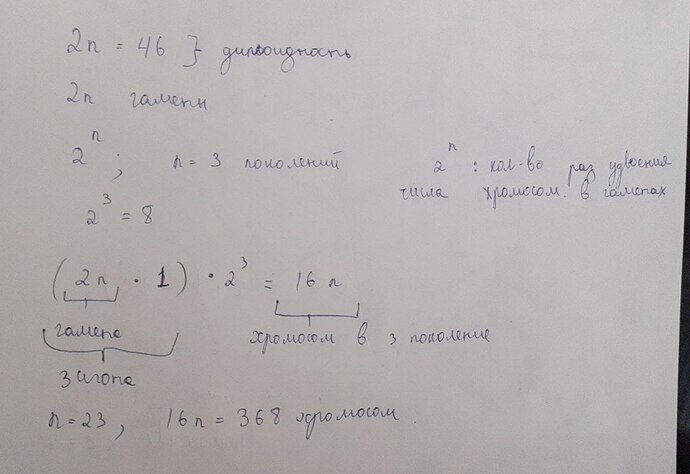 2n = 46 } диплоидность
2n гаметы
2^n ; n = 3 поколений
2^n : кол-во раз удвоения
числа хромосом. в гаметах
2^3 = 8
(2n · 1) · 2^3 = 16n
гамета
хромосом в 3 поколение
зигота
n = 23, 16n = 368 хромосом